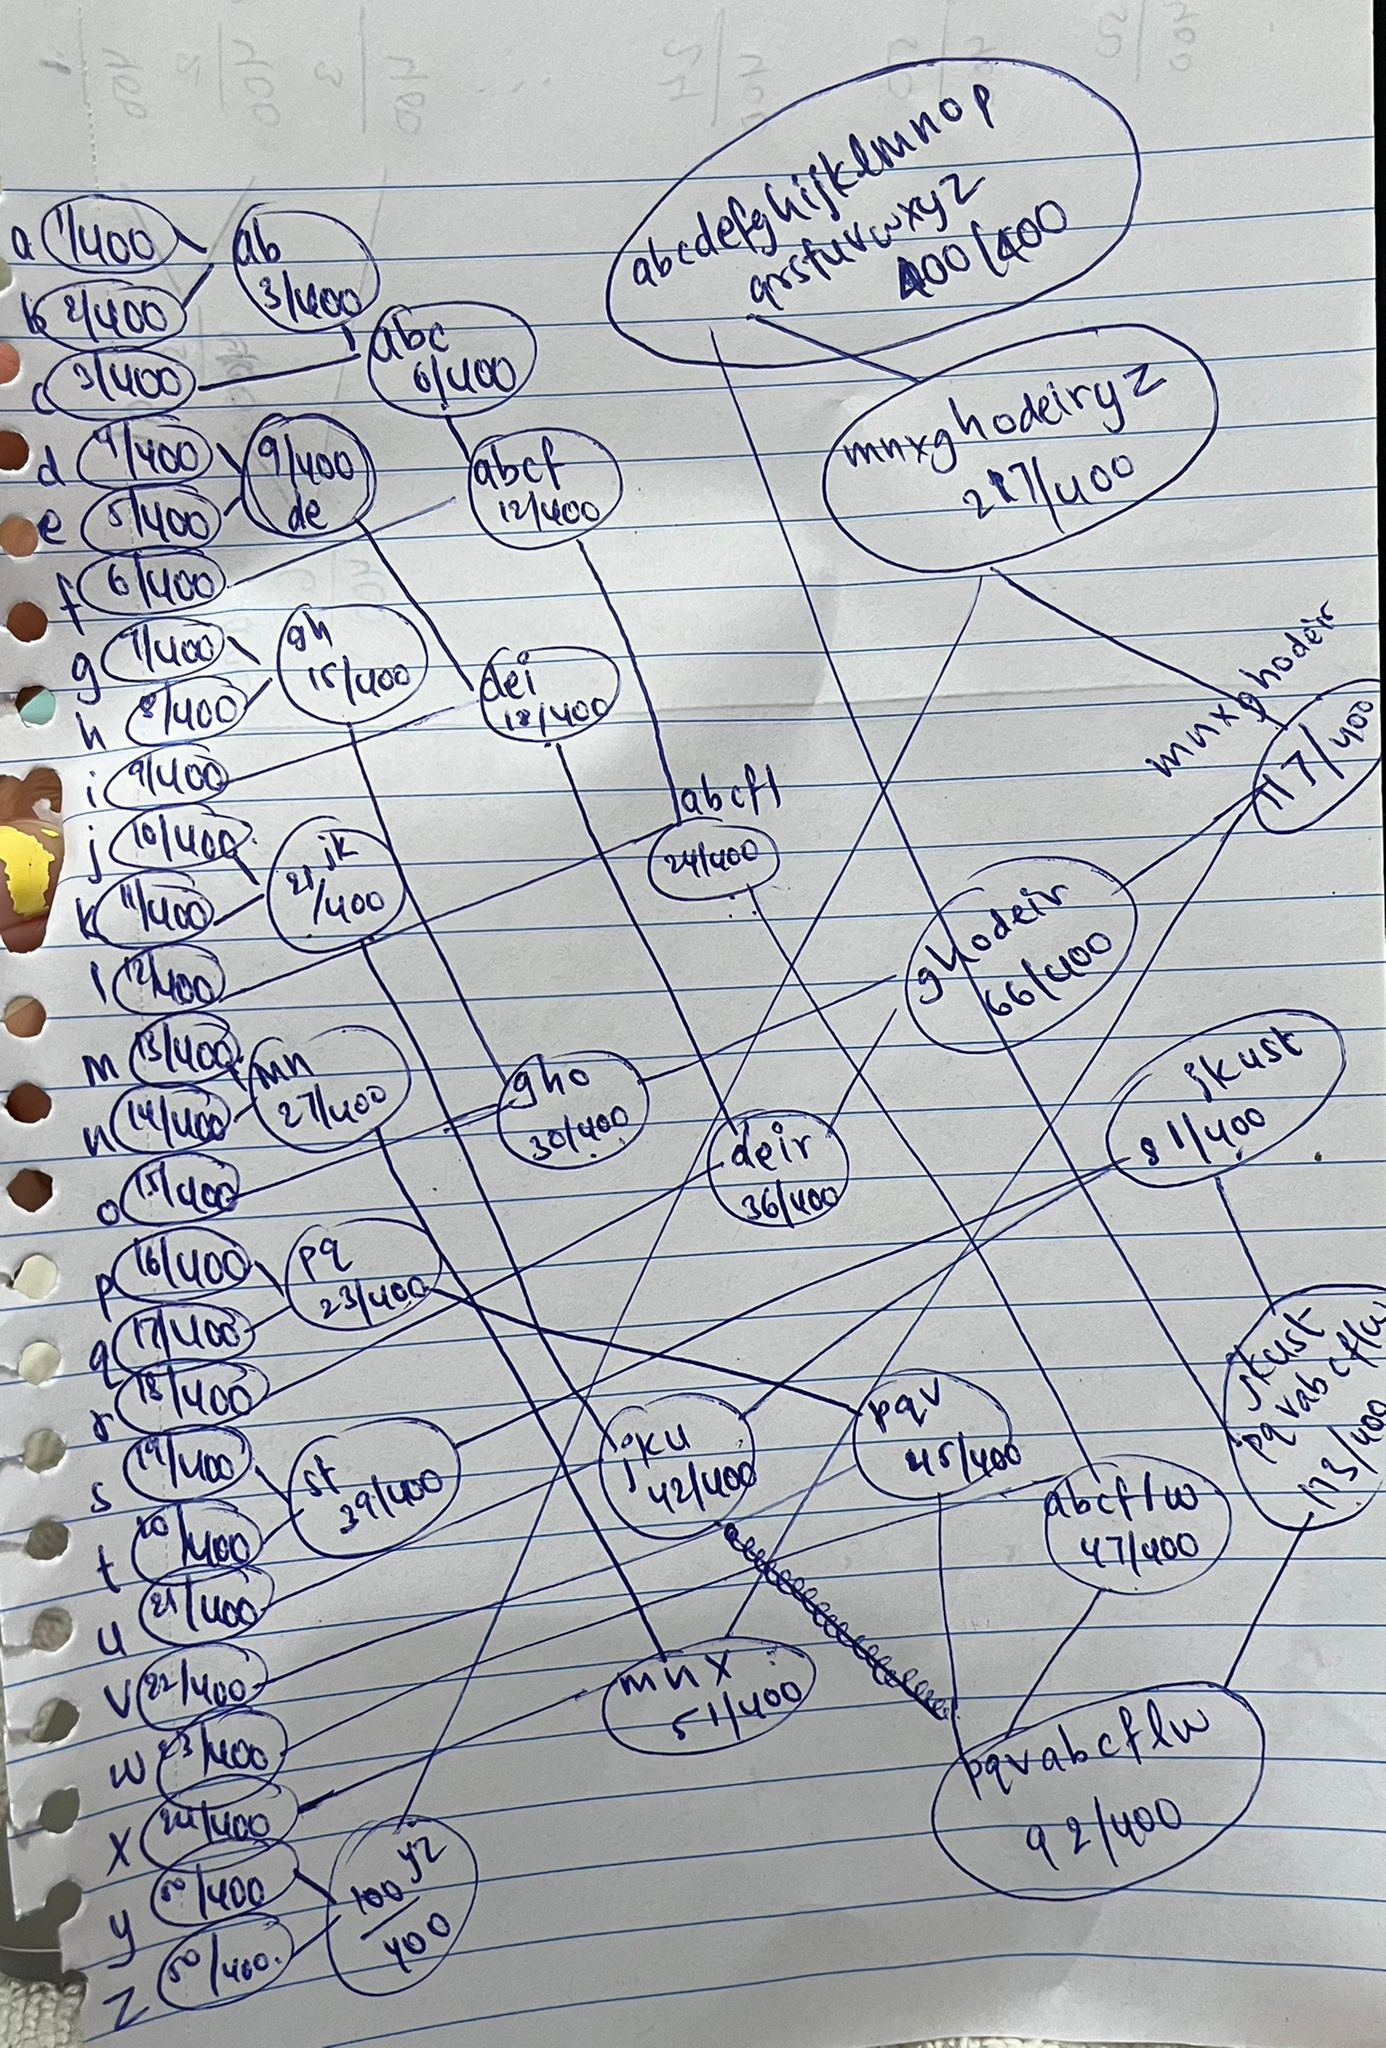 abcdefghijklmnop
qrstuvwxyz
400/400
a 1/400
ab
3/400
b 2/400
abc
6/400
c 3/400
mnxghodeiryz
217/400
d 4/400
9/400
de
abcf
12/400
e 5/400
f 6/400
g 7/400
gh
15/400
h 8/400
dei
18/400
mnxghodeir
117/400
i 9/400
abcfl
24/400
j 10/400
jk
21/400
k 11/400
ghodeir
66/400
l 12/400
m 13/400
mn
27/400
n 14/400
gho
30/400
jkust
81/400
deir
36/400
o 15/400
p 16/400
pq
23/400
q 17/400
r 18/400
jkust
pqvabcflw
173/400
s 19/400
st
39/400
jku
42/400
pqv
45/400
abcflw
47/400
t 20/400
u 21/400
v 22/400
mnx
51/400
w 23/400
pqvabcflw
92/400
x 24/400
y 50/400
yz
100
400
z 50/400